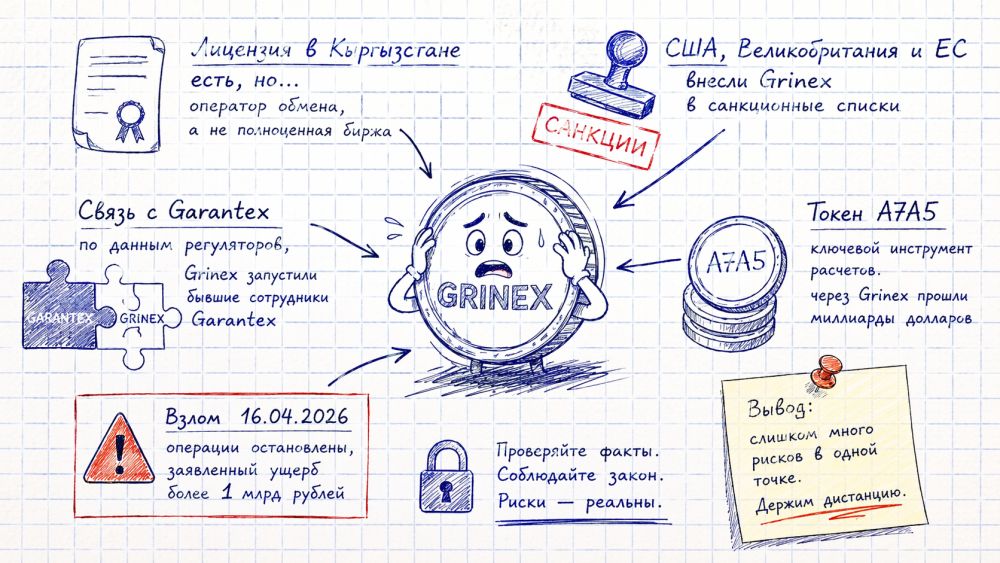 Лицензия в Кыргызстане
есть, но...
оператор обмена,
а не полноценная биржа
США, Великобритания и ЕС
внесли Grinex
в санкционные списки
САНКЦИИ
Связь с Garantex
по данным регуляторов,
Grinex запустили
бывшие сотрудники
Garantex
GARANTEX
GRINEX
GRINEX
Токен А7А5
ключевой инструмент
расчетов.
через Grinex прошли
миллиарды долларов
А7А5
Взлом 16.04.2026
операции остановлены,
заявленный ущерб
более 1 млрд рублей
Проверяйте факты.
Соблюдайте закон.
Риски — реальны.
Вывод:
слишком много
рисков в одной
точке.
Держим дистанцию.